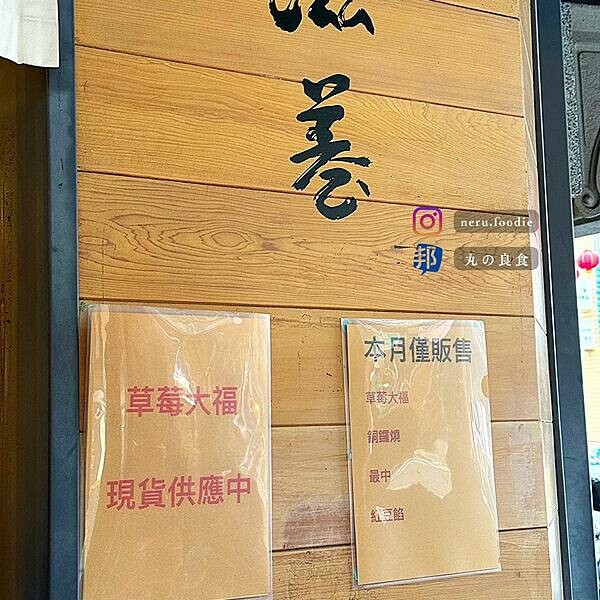 卷
neru.foodie
邦 丸の良食
草莓大福
現貨供應中
本月僅販售
草莓大福
銅鑼燒
最中
紅豆餡